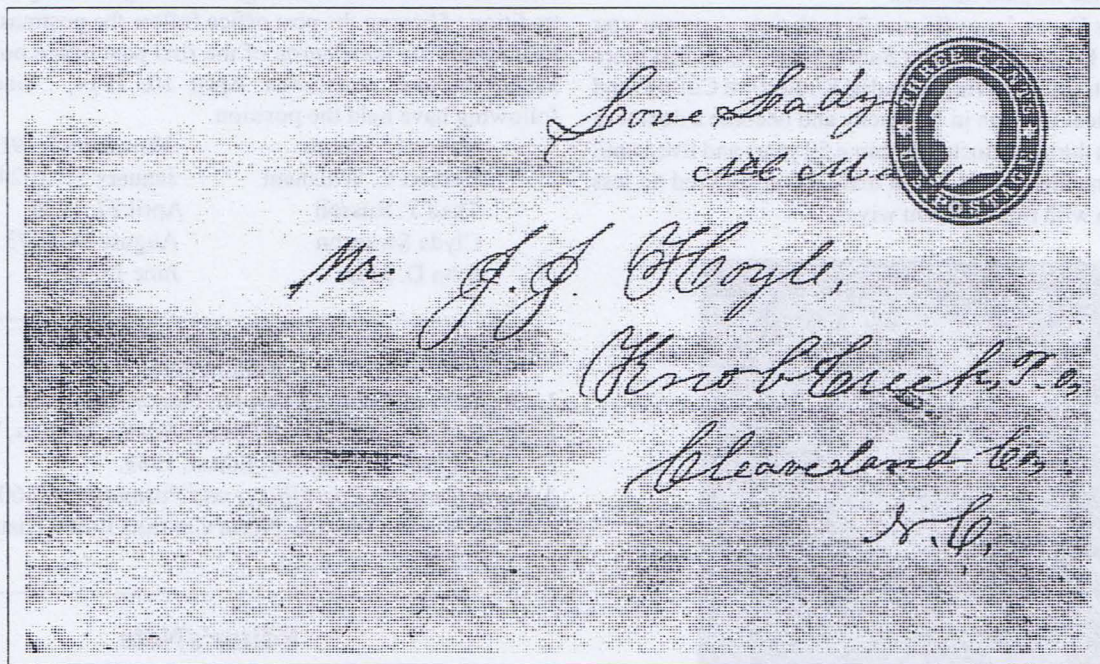 Love Lady
NC
THREE CENTS
U.S. POSTAGE
Mr. J. J. Hoyle,
Knob Creek, P.O.
Cleaveland Co.
N.C.